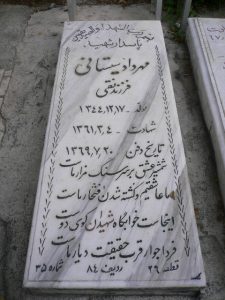 پاسدار شهید
مهرداد سیستانی
فرزند تقی
تولد ۱۳۴۴,۱۲,۱۷
شهادت ۱۳۶۱,۳,۴
تاریخ دفن ۱۳۶۹,۷,۲۰
بر سر سنگ مزار ماست
ما عاشقیم و کشته شدن افتخار ماست
اینجاست خوابگاه شهیدان کوی دوست
فردا جوار قرب حقیقت دیار ماست
قطعه ۲۶ ردیف ۸۴ شماره ۳۵